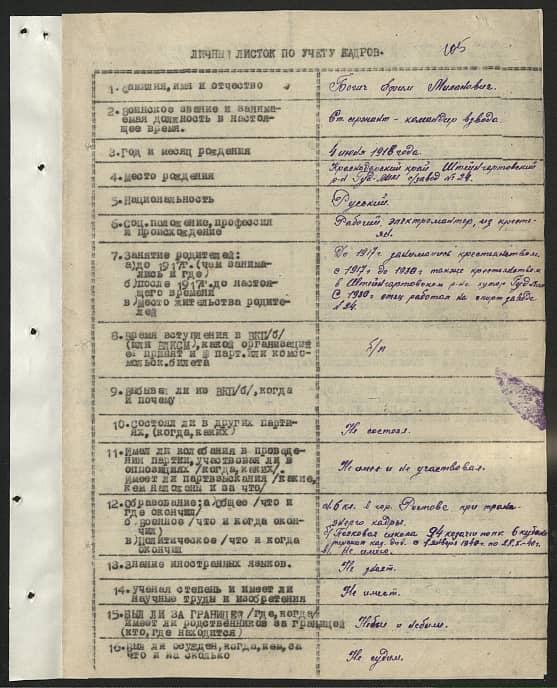 ЛИЧНЫЙ ЛИСТОК ПО УЧЕТУ КАДРОВ.
105
1. Фамилия, имя и отчество
2. Воинское звание и занима-
емая должность в настоя-
щее время.
Ст. сержант - командир взвода.
3. Год и месяц рождения
4 июня 1918 года.
4. Место рождения
Краснодарский край Штейнгартовский
р-н с/завод № 24.
5. Национальность
Русский.
6. Соц. положение, профессия
и происхождение
Рабочий электромонтер, из кресть-
ян.
7. Занятие родителей:
а) до 1917 г. (чем занима-
лись и где)
б) после 1917 до настоя-
щего времени
в) место жительства родите-
лей
До 1917 г. занимались крестьянством.
с 1917 до 1930 г. также крестьянством
в Штейнгартовском р-не хутор
С 1930 г отец работал на спиртзаводе
№ 24.
8. Время вступления в ВКП/б/
(или ВЛКСМ), какой организацией
принят и № парт. или комсо-
мольск. билета
б/п
9. Выбывал ли из ВКП/б/, когда
и почему
10. Состоял ли в других парти-
ях, (когда, каких)
Не состоял.
11. Имел ли колебания в проведе-
нии партии, участвовал ли в
оппозициях /когда, каких/.
Имеет ли партвзыскания /какие,
кем наложены и за что/
Не имел и не участвовал.
12. Образование: а) общее /что и
где окончил/
б) военное /что и когда окон-
чил/
в) политическое /что и когда
окончил
6 кл. в гор. Ростове при
кадры.
Полковая школа 94 казачий полк 6 кубано-
каз. див. с 1 января 1940 г. по
Не имеет.
13. Знание иностранных языков.
Не знает.
14. Ученая степень и имеет ли
научные труды и изобретения
Не имеет.
15. БЫЛ ЛИ ЗА ГРАНИЦЕЙ /где, когда/
имеет ли родственников за границей
(кто, где находится)
16. Был ли осужден, когда, кем, за
что и на сколько
Не судим.